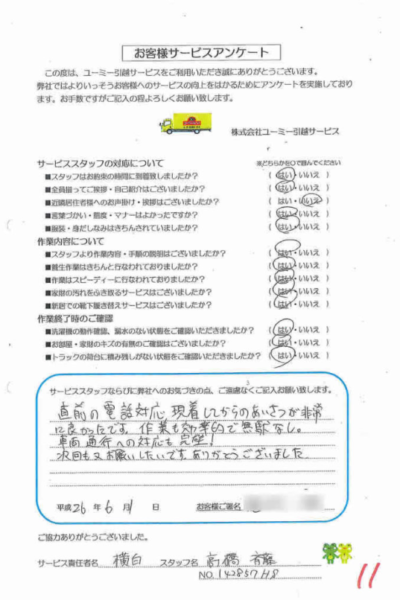 お客様サービスアンケート
この度は、ユーミー引越サービスをご利用いただき誠にありがとうございます。
弊社ではよりいっそうお客様へのサービスの向上をはかるためにアンケートを実施しており
ます。お手数ですがご記入の程よろしくお願い致します。
株式会社ユーミー引越サービス
サービススタッフの対応について
※どちらかを○で囲んでください
■スタッフはお約束の時間に到着致しましたか? ( はい・いいえ )
■全員揃ってご挨拶・自己紹介はございましたか? ( はい・いいえ )
■近隣居住者様へのお声掛け・挨拶はございましたか? ( はい・いいえ )
■言葉づかい・態度・マナーはよかったですか? ( はい・いいえ )
■服装・身だしなみはきちんされていましたか? ( はい・いいえ )
作業内容について
■スタッフより作業内容・手順の説明はございましたか? ( はい・いいえ )
■養生作業はきちんと行なわれておりましたか? ( はい・いいえ )
■作業はスピーディーに行なわれておりましたか? ( はい・いいえ )
■家財の汚れをふき取るサービスはございましたか? ( はい・いいえ )
■新居での靴下履き替えサービスはございましたか? ( はい・いいえ )
作業終了時のご確認
■洗濯機の動作確認、漏水のない状態をご確認いただきましたか? ( はい・いいえ )
■お部屋・家財のキズの有無のご確認はございましたか? ( はい・いいえ )
■トラックの荷台に積み残しがない状態をご確認いただきましたか? ( はい・いいえ )
サービススタッフならびに弊社へのお気づきの点、ご遠慮なくご記入お願い致します。
直前の電話対応、現着してからのあいさつが非常
に良かったです。作業も効率的で無駄なし。
車両通行への対応も完璧!
次回も又お願いしたいです。ありがとうございました
平成26年 6月1 日 お客様ご署名
ご協力ありがとうございました。
サービス責任者名 横白 スタッフ名 高橋 斉藤
NO.
11